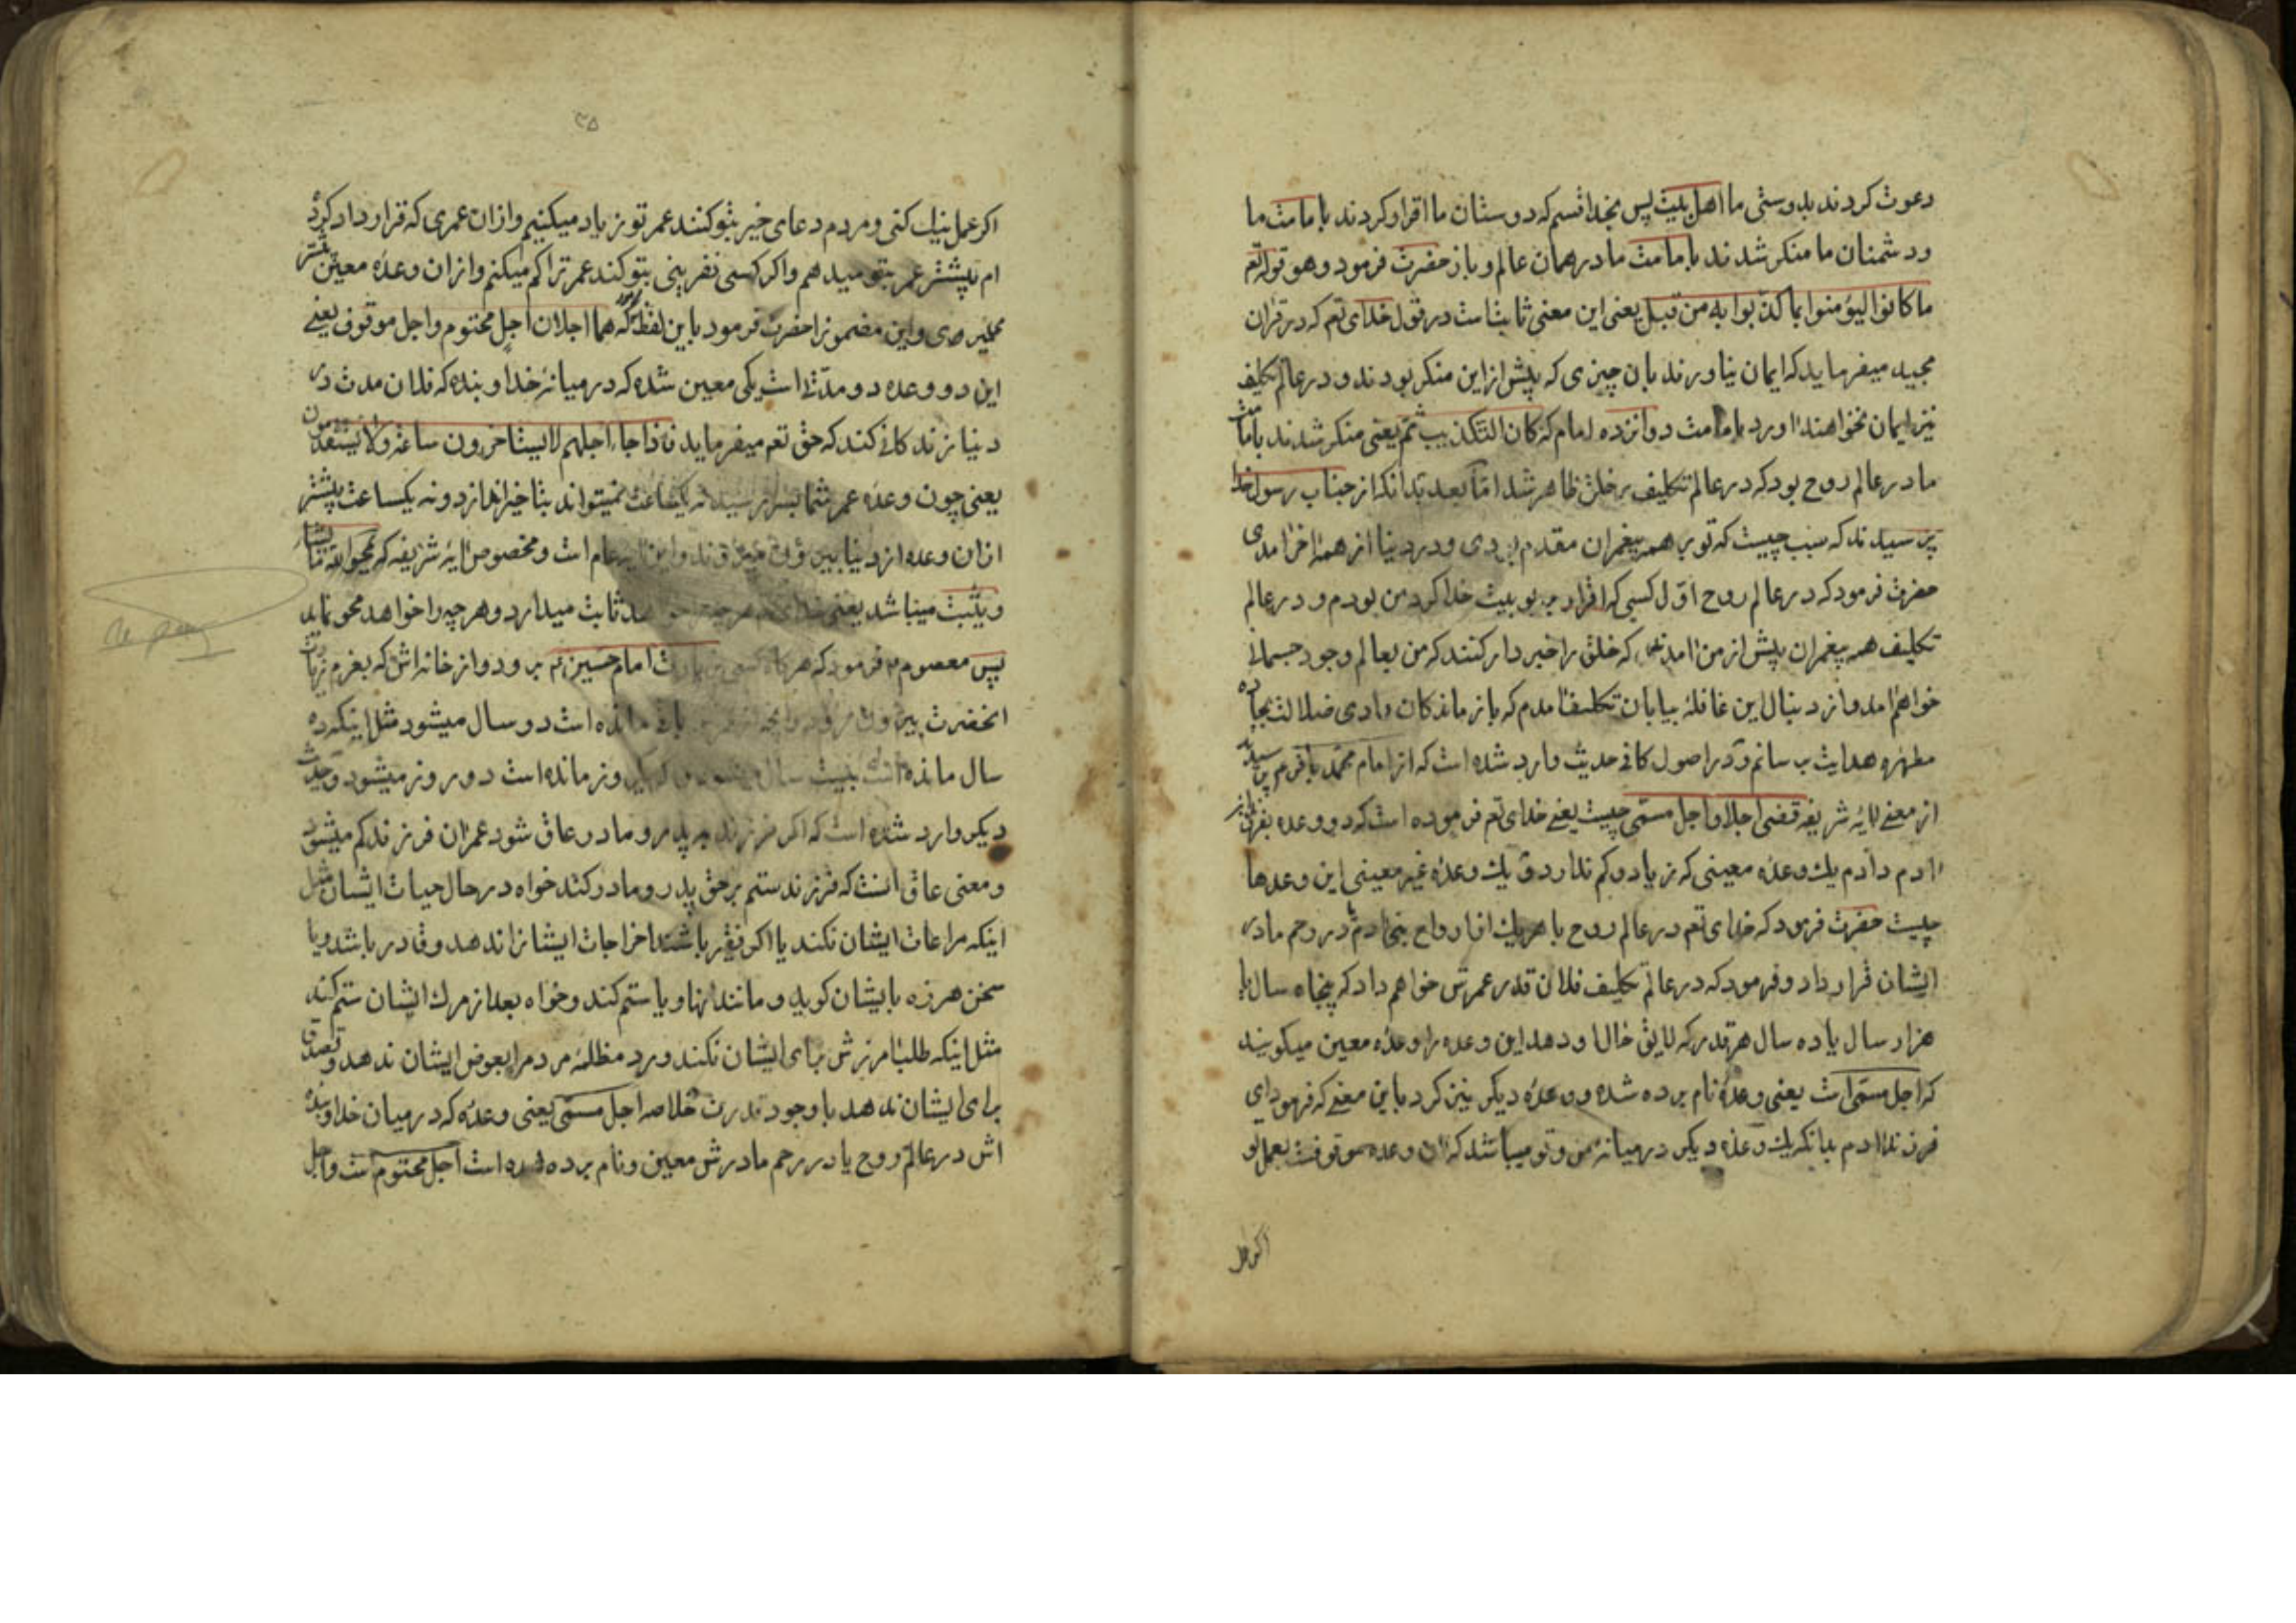 دعوت کردند بدوستی ما اهل بیت پس بخدا قسم که دوستان ما اقرار کردند بامامت ما
و دشمنان ما منکر شدند بامامت ما در همان عالم و باز حضرت فرمود و هو قوله تع
ما کانوا لیؤمنوا بما کذبوا به من قبل یعنی این معنی ثابتست در قول خدای تع که در قران
مجید میفرماید که ایمان نیاورند بان چیزی که پیش از این منکر بودند و در عالم تکلیف
نیز ایمان نخواهند اورد بامامت دوانزده امام که کان التکذیب ثم یعنی منکر شدند بامامت
ما در عالم روح بود که در عالم تکلیف بر خلق ظاهر شد اما بعد بدانکه از جناب رسول خدا
پرسیدند که سبب چیست که تو بر همه پیغمران مقدم بودی و در دنیا از همه اخر امدی
حضرت فرمود که در عالم روح اول کسی که اقرار بربوبیت خدا کرد من بودم و در عالم
تکلیف همه پیغمران پیش از من امدند که خلق را خبردار کنند که من بعالم وجود جسمانی
خواهم امد و از دنبال این غافلهٔ بیابان تکلیف امدم که بازماندکان وادی ضلالت بجاده
مطهره هدایت برسانم و در اصول کافی حدیث وارد شده است که از امام محمد باقر ع پرسیدند
از معنی ایهٔ شریفه قضی اجلا و اجل مسمی چیست یعنی خدای تع فرموده است که دو وعده بفرزند
ادم دادم یک وعدهٔ معینی که زیاد و کم ندارد و یک وعدهٔ غیر معینی این وعدها
چیست حضرت فرمود که خدای تع در عالم روح با هریک از ارواح بنی ادم در رحم مادر
ایشان قرار داد و فرمود که در عالم تکلیف فلان قدر عمرش خواهم داد که پنجاه سال یا
هزار سال یا ده سال هر قدر که لایق حال او دهد این وعده را وعدهٔ معین میکویند
که اجل مسمی است یعنی وعدهٔ نام برده شده و وعدهٔ دیکر نیز کرد باین معنی که فرمود ای
فرزند ادم بدانکه یک وعدهٔ دیکر در میانهٔ من و تو میباشد که ان وعده موقوفست بعمل تو
اکر عمل
۳۵
اکر عمل نیک کنی و مردم دعای خیر بتو کنند عمر تو زیاد میکنیم و از ان عمری که قرار داد کرده
ام بیشتر عمر بتو میدهم و اکر کسی نفرینی بتو کند عمر ترا کم میکنم و از ان وعدهٔ معین پیشتر
میری و این مضمونرا حضرت فرمود باین لفظ که هما اجلان اجل محتوم و اجل موقوف یعنی
این دو وعده دو مدتی است یکی معین شده که در میانهٔ خدا و بنده که فلان مدت در
دنیا زندکانی کند که حق تع میفرماید فاذا جاء اجلهم لا یستاخرون ساعة ولا یستقدمون
یعنی چون وعدهٔ عمر شما بسر رسید نه یکساعت نمیتواند بتاخیر اندازد و نه یکساعت پیشتر
از ان وعده از دنیا بیرون میروند و این ایه عام است و مخصوص ایهٔ شریفه که یمحو الله ما یشاء
و یثبت میباشد یعنی خدای تع هر چه خواهد ثابت میدارد و هر چه را خواهد محو نماید
پس معصوم ع فرمود که هرکاه کسی بزیارت امام حسین ع برود و از خانه اش که بعزم زیارت
انحضرت بیرون رود و انچه از عمرش باقی مانده است دو سال میشود مثل اینکه ده
سال مانده است بیست سال میشود و روز مانده است دو روز میشود و حدیث
دیکر وارد شده است که اکر فرزند بر پدر و مادر عاق شود عمر ان فرزند کم میشود
و معنی عاق انست که فرزند ستم بر حق پدر و مادر کند خواه در حال حیات ایشان مثل
اینکه مراعات ایشان نکند یا اکر فقیر باشند اخراجات ایشانرا ندهد و قادر باشد و یا
سخن هرزه بایشان کوید و مانند انها و یا ستم کند و خواه بعد از مرک ایشان ستم کند
مثل اینکه طلب امرزش برای ایشان نکند و رد مظلمهٔ مردم را بعوض ایشان ندهد و تصدق
برای ایشان ندهد با وجود قدرت خلاصه اجل مسمی یعنی وعدهٔ که در میان خدا و بنده
اش در عالم روح یا در رحم مادرش معین و نام برده شده است اجل محتوم است و اجل